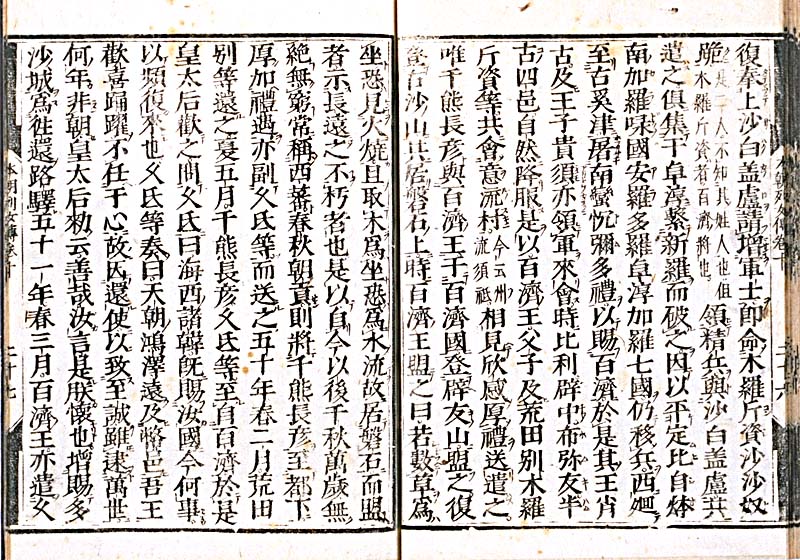 復奉上沙白盖盧請增軍士即命木羅斤資沙沙奴
跪是二人不知其姓人也但木羅斤資者百濟將也領精兵與沙白盖盧共
遣之俱集于卓淳擊新羅而破之因以平定比自㶱
南加羅㖨國安羅多羅卓淳加羅七國仍移兵西廻
至古奚津屠南蠻忱彌多禮以賜百濟於是其王肖
古及王子貴須亦領軍來會時比利辟中布弥友半
古四邑自然降服是以百濟王父子及荒田別木羅
斤資等共會意流村今云州流須祇相見欣感厚禮送遣之
唯千熊長彦與百濟王于百濟國登辟友山盟之復
登古沙山共居磐石上時百濟王盟之曰若敷草為
坐恐見火燒且取木為坐恐為水流故居磐石而盟
者示長遠之不朽者也是以自今以後千秋萬歲無
絶無窮常稱西蕃春秋朝貢則將千熊長彦至都下
厚加禮遇亦副久氐等而送之五十年春二月荒田
別等還之夏五月千熊長彦久氐等至自百濟於是
皇太后歡之問久氐曰海西諸韓既賜汝國今何事
以頻復來也久氐等奏曰天朝鴻澤遠及幣邑吾王
歡喜踊躍不任于心故因還使以致至誠雖逮萬世
何年非朝皇太后勑云善哉汝言是朕懷也增賜多
沙城為徃還路驛五十一年春三月百濟王亦遣久
本朝列女傳卷十
二十七